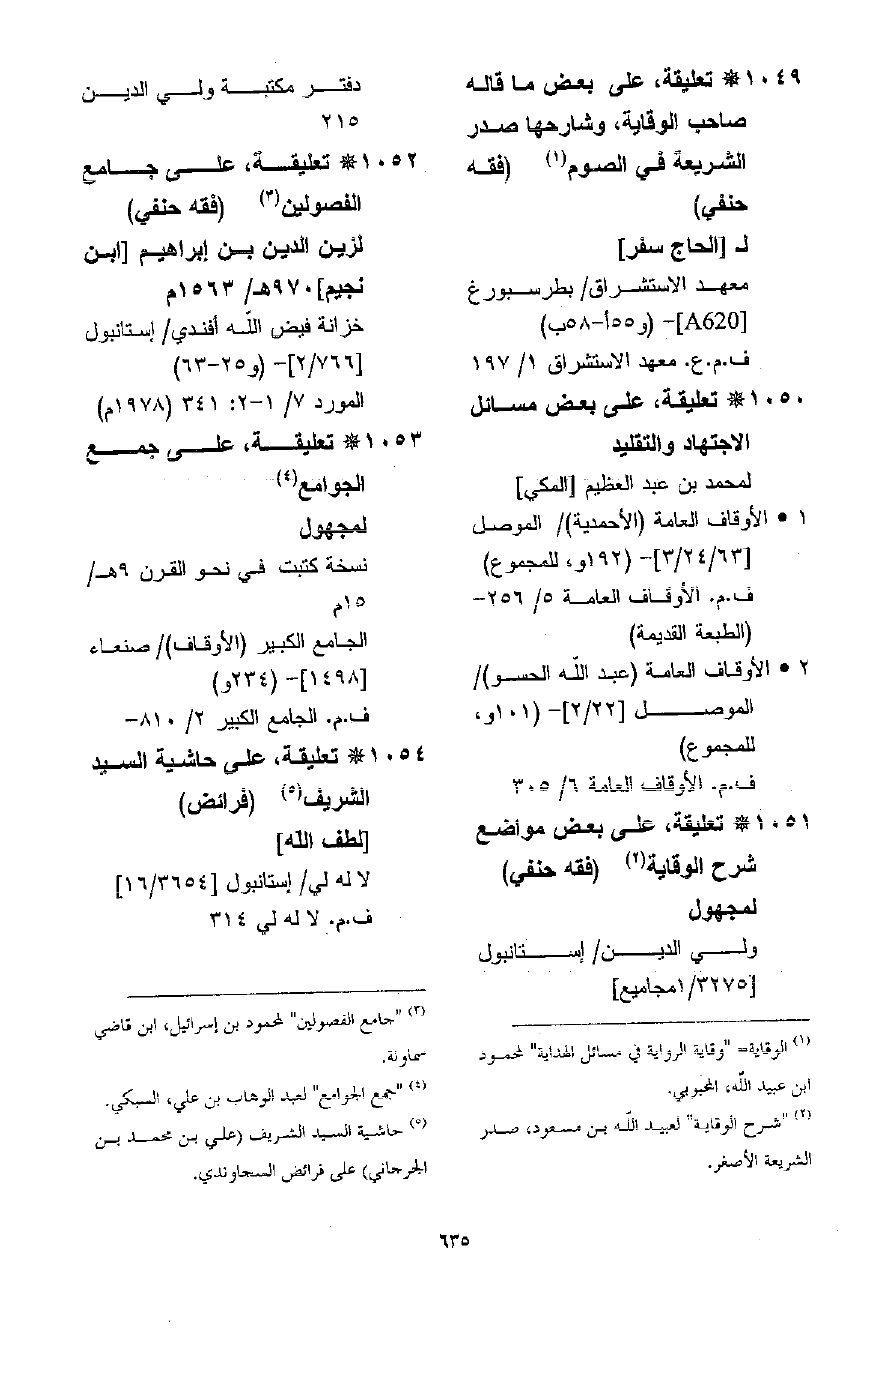 ١٠٤٩ * تعليقة، على بعض ما قاله
صاحب الوقاية، وشارحها صدر
الشريعة في الصوم(١) (فقه
حنفي)
لـ [الحاج سفر]
معهد الاستشراق/ بطرسبورغ
[A620]- (و٥٥أ-٥٨ب)
ف.م.ع. معهد الاستشراق ١/ ١٩٧
١٠٥٠ * تعليقة، على بعض مسائل
الاجتهاد والتقليد
لمحمد بن عبد العظيم [المكي]
١ • الأوقاف العامة (الأحمدية)/ الموصل
[٣/٢٤/٦٣]- (١٩٢و، للمجموع)
ف.م. الأوقاف العامة ٥/ ٢٥٦-
(الطبعة القديمة)
٢ • الأوقاف العامة (عبد الله الحسو)/
الموصل [٢/٢٢]- (١٠١و،
للمجموع)
ف.م. الأوقاف العامة ٦/ ٣٠٥
١٠٥١ * تعليقة، على بعض مواضع
شرح الوقاية(٢) (فقه حنفي)
لمجهول
ولي الدين/ إستانبول
[١/٣٢٧٥مجاميع]
(١) الوقاية= "وقاية الرواية في مسائل الهداية" لمحمود
ابن عبيد الله، المحبوبي.
(٢) "شرح الوقاية" لعبيد الله بن مسعود، صدر
الشريعة الأصغر.
دفتر مكتبة ولي الدين
٢١٥
١٠٥٢ * تعليقة، على جامع
الفصولين(٣) (فقه حنفي)
لزين الدين بن إبراهيم [ابن
نجيم]٩٧٠هـ/ ١٥٦٣م
خزانة فيض الله أفندي/ إستانبول
[٢/٧٦٦]- (و٢٥-٦٣)
المورد ٧/ ١-٢: ٣٤١ (١٩٧٨م)
١٠٥٣ * تعليقة، على جمع
الجوامع(٤)
لمجهول
نسخة كتبت في نحو القرن ٩هـ/
١٥م
الجامع الكبير (الأوقاف)/ صنعاء
[١٤٩٨]- (٢٣٤و)
ف.م. الجامع الكبير ٢/ ٨١٠-
١٠٥٤ * تعليقة، على حاشية السيد
الشريف(٥) (فرائض)
[لطف الله]
لا له لي/ إستانبول [١٦/٣٦٥٤]
ف.م. لا له لي ٣١٤
(٣) "جامع الفصولين" لمحمود بن إسرائيل، ابن قاضي
سماونة.
(٤) "جمع الجوامع" لعبد الوهاب بن علي، السبكي.
(٥) حاشية السيد الشريف (علي بن محمد بن
الجرجاني) على فرائض السجاوندي.
٦٣٥